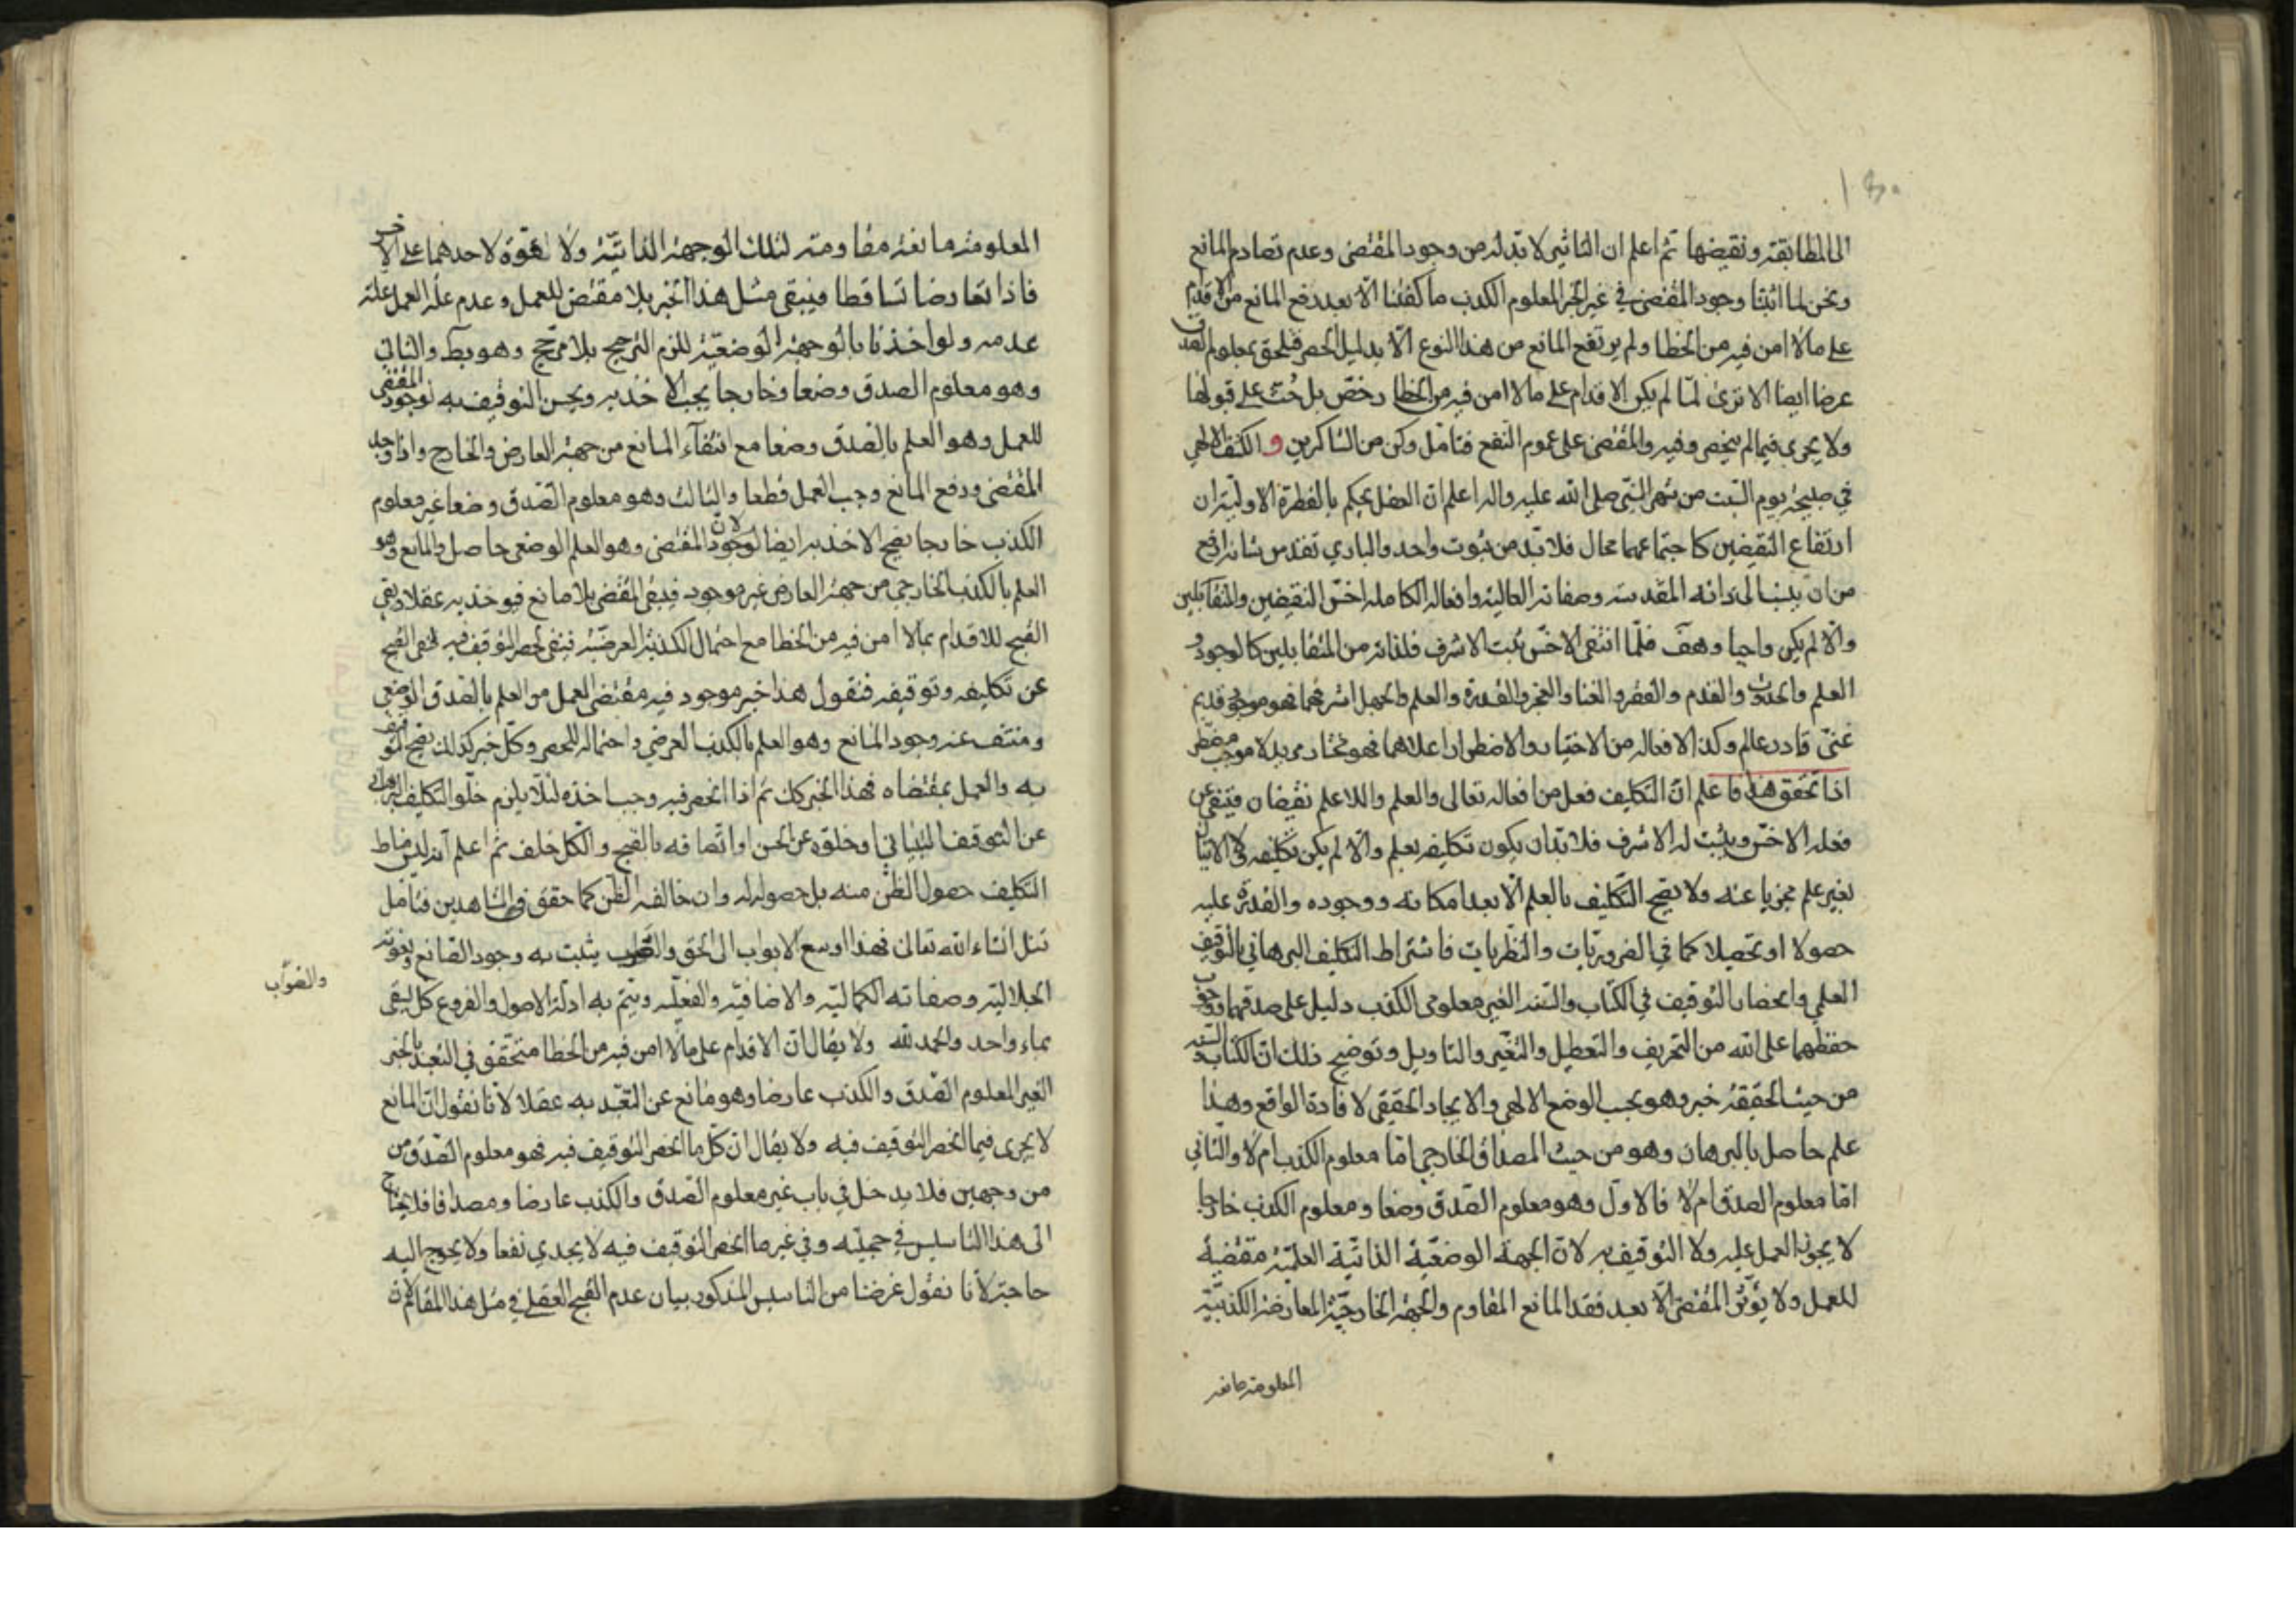 الی المطابقة ونقیضها ثم اعلم ان التاثیر لا بدله من وجود المقتضی وعدم تصادم المانع
ونحن لما اثبتنا وجود المقتضی فی غیر الخبر المعلوم الکذب ما کفتنا الا بعد رفع المانع من الاقدام
علی ما لا امن فیه من الخطا ولم یرتفع المانع من هذا النوع الا بدلیل الحصر فلحق بمعلوم الصدق
عرضا ایضا الا تری لما لم یکن الاقدام علی ما لا امن فیه من الخطا رخص بل حث علی قبولها
ولا یجری فیما لم ینحصر وفیه والمقتضی علی عموم النفع فتامل وکن من الشاکرین و الکشف الالهی
فی صبیحة یوم السبت من شهر النبی صلی الله علیه واله اعلم ان العقل یحکم بالفطرة الاولیة ان
ارتفاع النقیضین کاجتماعهما محال فلا بد من ثبوت واحد والباری تقدس شانه ارفع
من ان ینسب الی ذاته المقدسة وصفاته العالیة وافعاله الکاملة اخس النقیضین والمتقابلین
والا لم یکن واجبا وهف فلما انتفی الاخس ثبت الاشرف فلذاته من المتقابلین کالوجود و
العدم والحدوث والقدم والفقر والغنا والعجز والقدرة والعلم والجهل اشرفهما فهو موجود قدیم
غنی قادر عالم وکذا لافعاله من الاختیار والاضطرار اعلاهما فهو مختار مرید لا موجب مضطر
اذا تحقق هذا فاعلم ان التکلیف فعل من افعاله تعالی والعلم واللاعلم نقیضان فینتفی عن
فعله الاخس ویثبت له الاشرف فلا بد ان یکون تکلیفه بعلم والا لم یکن تکلیفه لان الاتیان
بغیر علم مجزیا عنه ولا یصح التکلیف بالعلم الا بعد امکانه ووجوده والقدرة علیه
حصولا او تحصیلا کما فی الضروریات والنظریات فاشتراط التکلیف البرهانی بالتوقیف
العلمی وانحصار التوقیف فی الکتاب والسنة الغیر معلومی الکذب دلیل علی صدقهما ووجوب
حفظهما علی الله من التحریف والتعطیل والتغییر والتاویل وتوضیح ذلک ان الکتاب والسنة
من حیث الحقیقة خبر وهو بحسب الوضع الالهی والایجاد الحقیقی لافادة الواقع وهذا
علم حاصل بالبرهان وهو من حیث المصداق الخارجی اما معلوم الکذب ام لا والثانی
اما معلوم الصدق ام لا فالاول وهو معلوم الصدق وضعا ومعلوم الکذب خارجا
لا یجوز العمل علیه ولا التوقیف به لان الجهة الوضعیة الذاتیة العلمیة مقتضیة
للعمل ولا یؤثر المقتضی الا بعد فقد المانع المقاوم والجهة الخارجیة المعارضة الکذبیة
المعلومة مانعة
المعلومة مانعة مقاومة لتلک الوجهة الذاتیة ولا قوة لاحدهما علی الاخر
فاذا تعارضا تساقطا فیبقی مثل هذا الخبر بلا مقتض للعمل وعدم علة العمل علة
عدمه ولو اخذنا بالوجهة الوضعیة للزم الترجیح بلا مرجح وهو بط والثانی
وهو معلوم الصدق وضعا وخارجا یجب الاخذ به ویحسن التوقیف به لوجود المقتضی
للعمل وهو العلم بالصدق وضعا مع انتفاء المانع من جهة العارض والخارج واذا وجد
المقتضی ودفع المانع وجب العمل قطعا والثالث وهو معلوم الصدق وضعا غیر معلوم
الکذب خارجا یصح الاخذ به ایضا لان وجود المقتضی وهو العلم الوضعی حاصل والمانع وهو
العلم بالکذب الخارجی من جهة العارض غیر موجود فیبقی المقتضی بلا مانع فیوخذ به عقلا وبقی
القبح للاقدام بما لا امن فیه من الخطا مع احتمال الکذبیة العرضیة فینفی لحصر التوقیف فیه فنفی القبح
عن تکلیفه وتوقیفه فنقول هذا خبر موجود فیه مقتضی العمل من العلم بالصدق الوضعی
ومنتف عنه وجود المانع وهو العلم بالکذب العرضی واحتماله للحصر وکل خبر کذلک یصح التوقیف
به والعمل بمقتضاه فهذا الخبر کک ثم اذا انحصر فیه وجب اخذه لئلا یلزم خلو التکلیف
عن التوقیف البنیانی او خلوه عن الحسن او اتصافه بالقبح والکل خلف ثم اعلم انه لیس مناط
التکلیف حصول الظن منه بل حصوله له وان خالفه الظن کما حقق فی الشاهدین فتامل
تنل انشاء الله تعالی فهذا اوسع الابواب الی الحق یثبت به وجود الصانع ونعوته
والصواب
الجلالیة وصفاته الکمالیة والاضافیة والفعلیة ویتم به ادلة الاصول والفروع کل یسقی
بماء واحد والحمد لله ولا یقال ان الاقدام علی ما لا امن فیه من الخطا متحقق فی التعبد بالخبر
الغیر المعلوم الصدق والکذب عارضا وهو مانع عن التعبد به عقلا لانا نقول ان المانع
لا یجری فیما انحصر التوقیف فیه ولا یقال ان کل ما انحصر التوقیف فیه فهو معلوم الصدق من
من وجهین فلا یدخل فی باب غیر معلوم الصدق والکذب عارضا ومصداقا فلا یحتاج
الی هذا التاسیس فی حجیته وفی غیر ما انحصر التوقیف فیه لا یجدی نفعا ولا یحوج الیه
حاجة لانا نقول غرضنا من التاسیس المذکور بیان عدم القبح العقلی فی مثل هذا المقام لان